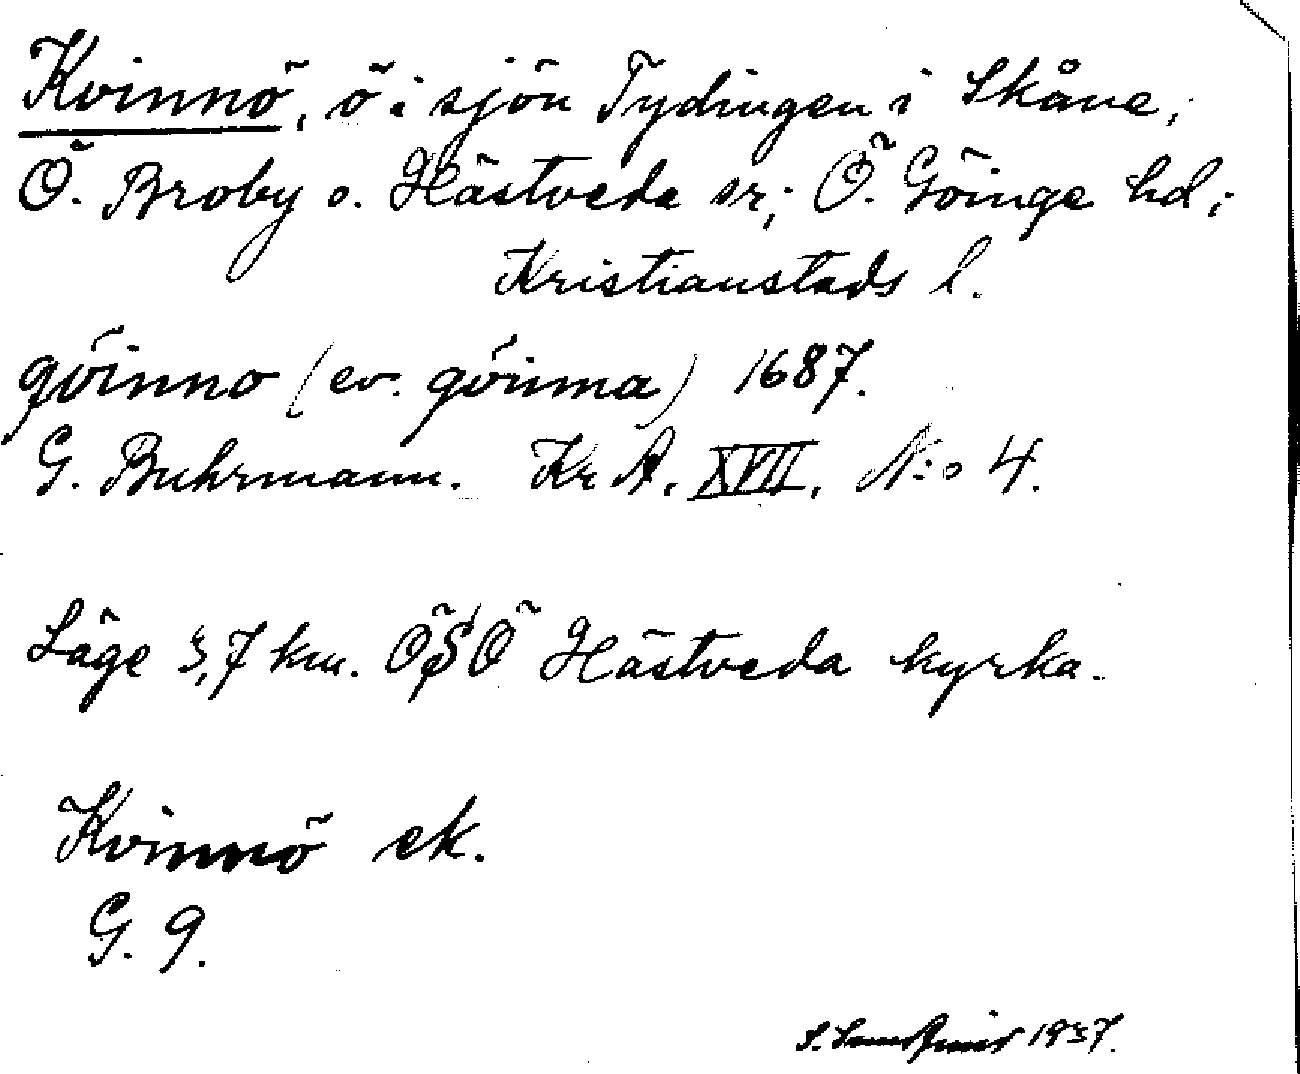 Kvinnö, ö i sjön Tydingen i Skåne,
Ö. Broby o. Hästveda sr; Ö. Göinge hd;
Kristianstads l.
qvinno (ev. qvinna) 1687.
G. Buhrmann. Kr A. XVII, N:o 4.
Läge 3,7 km. ÖSÖ Hästveda kyrka.
Kvinnö ek.
G. 9.
S. 1937.